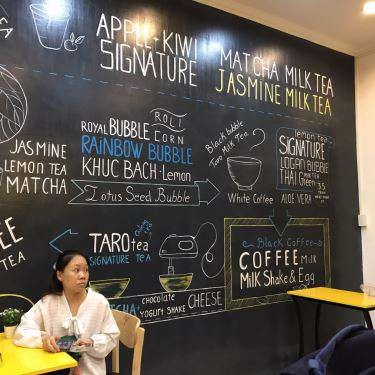 TEA
APPLE+KIWI
SIGNATURE
MATCHA MILK TEA
JASMINE MILK TEA
ROLI
ROYAL BUBBLE CORN
RAINBOW BUBBLE
KHUC BACH - Lemon
Lotus Seed Bubble
JASMINE
LEMON TEA
MATCHA
Black bubble
Taro Milk Tea
White Coffee
lemon tea
SIGNATURE
LOGAN BUBBLE
THAI Green
35
ALOE VERA
TARO tea
SIGNATURE TEA
MATCHA:
chocolate
YOGURT SHAKE
CHEESE
Black Coffee
COFFEE Milk
Milk Shake & Egg
TEA